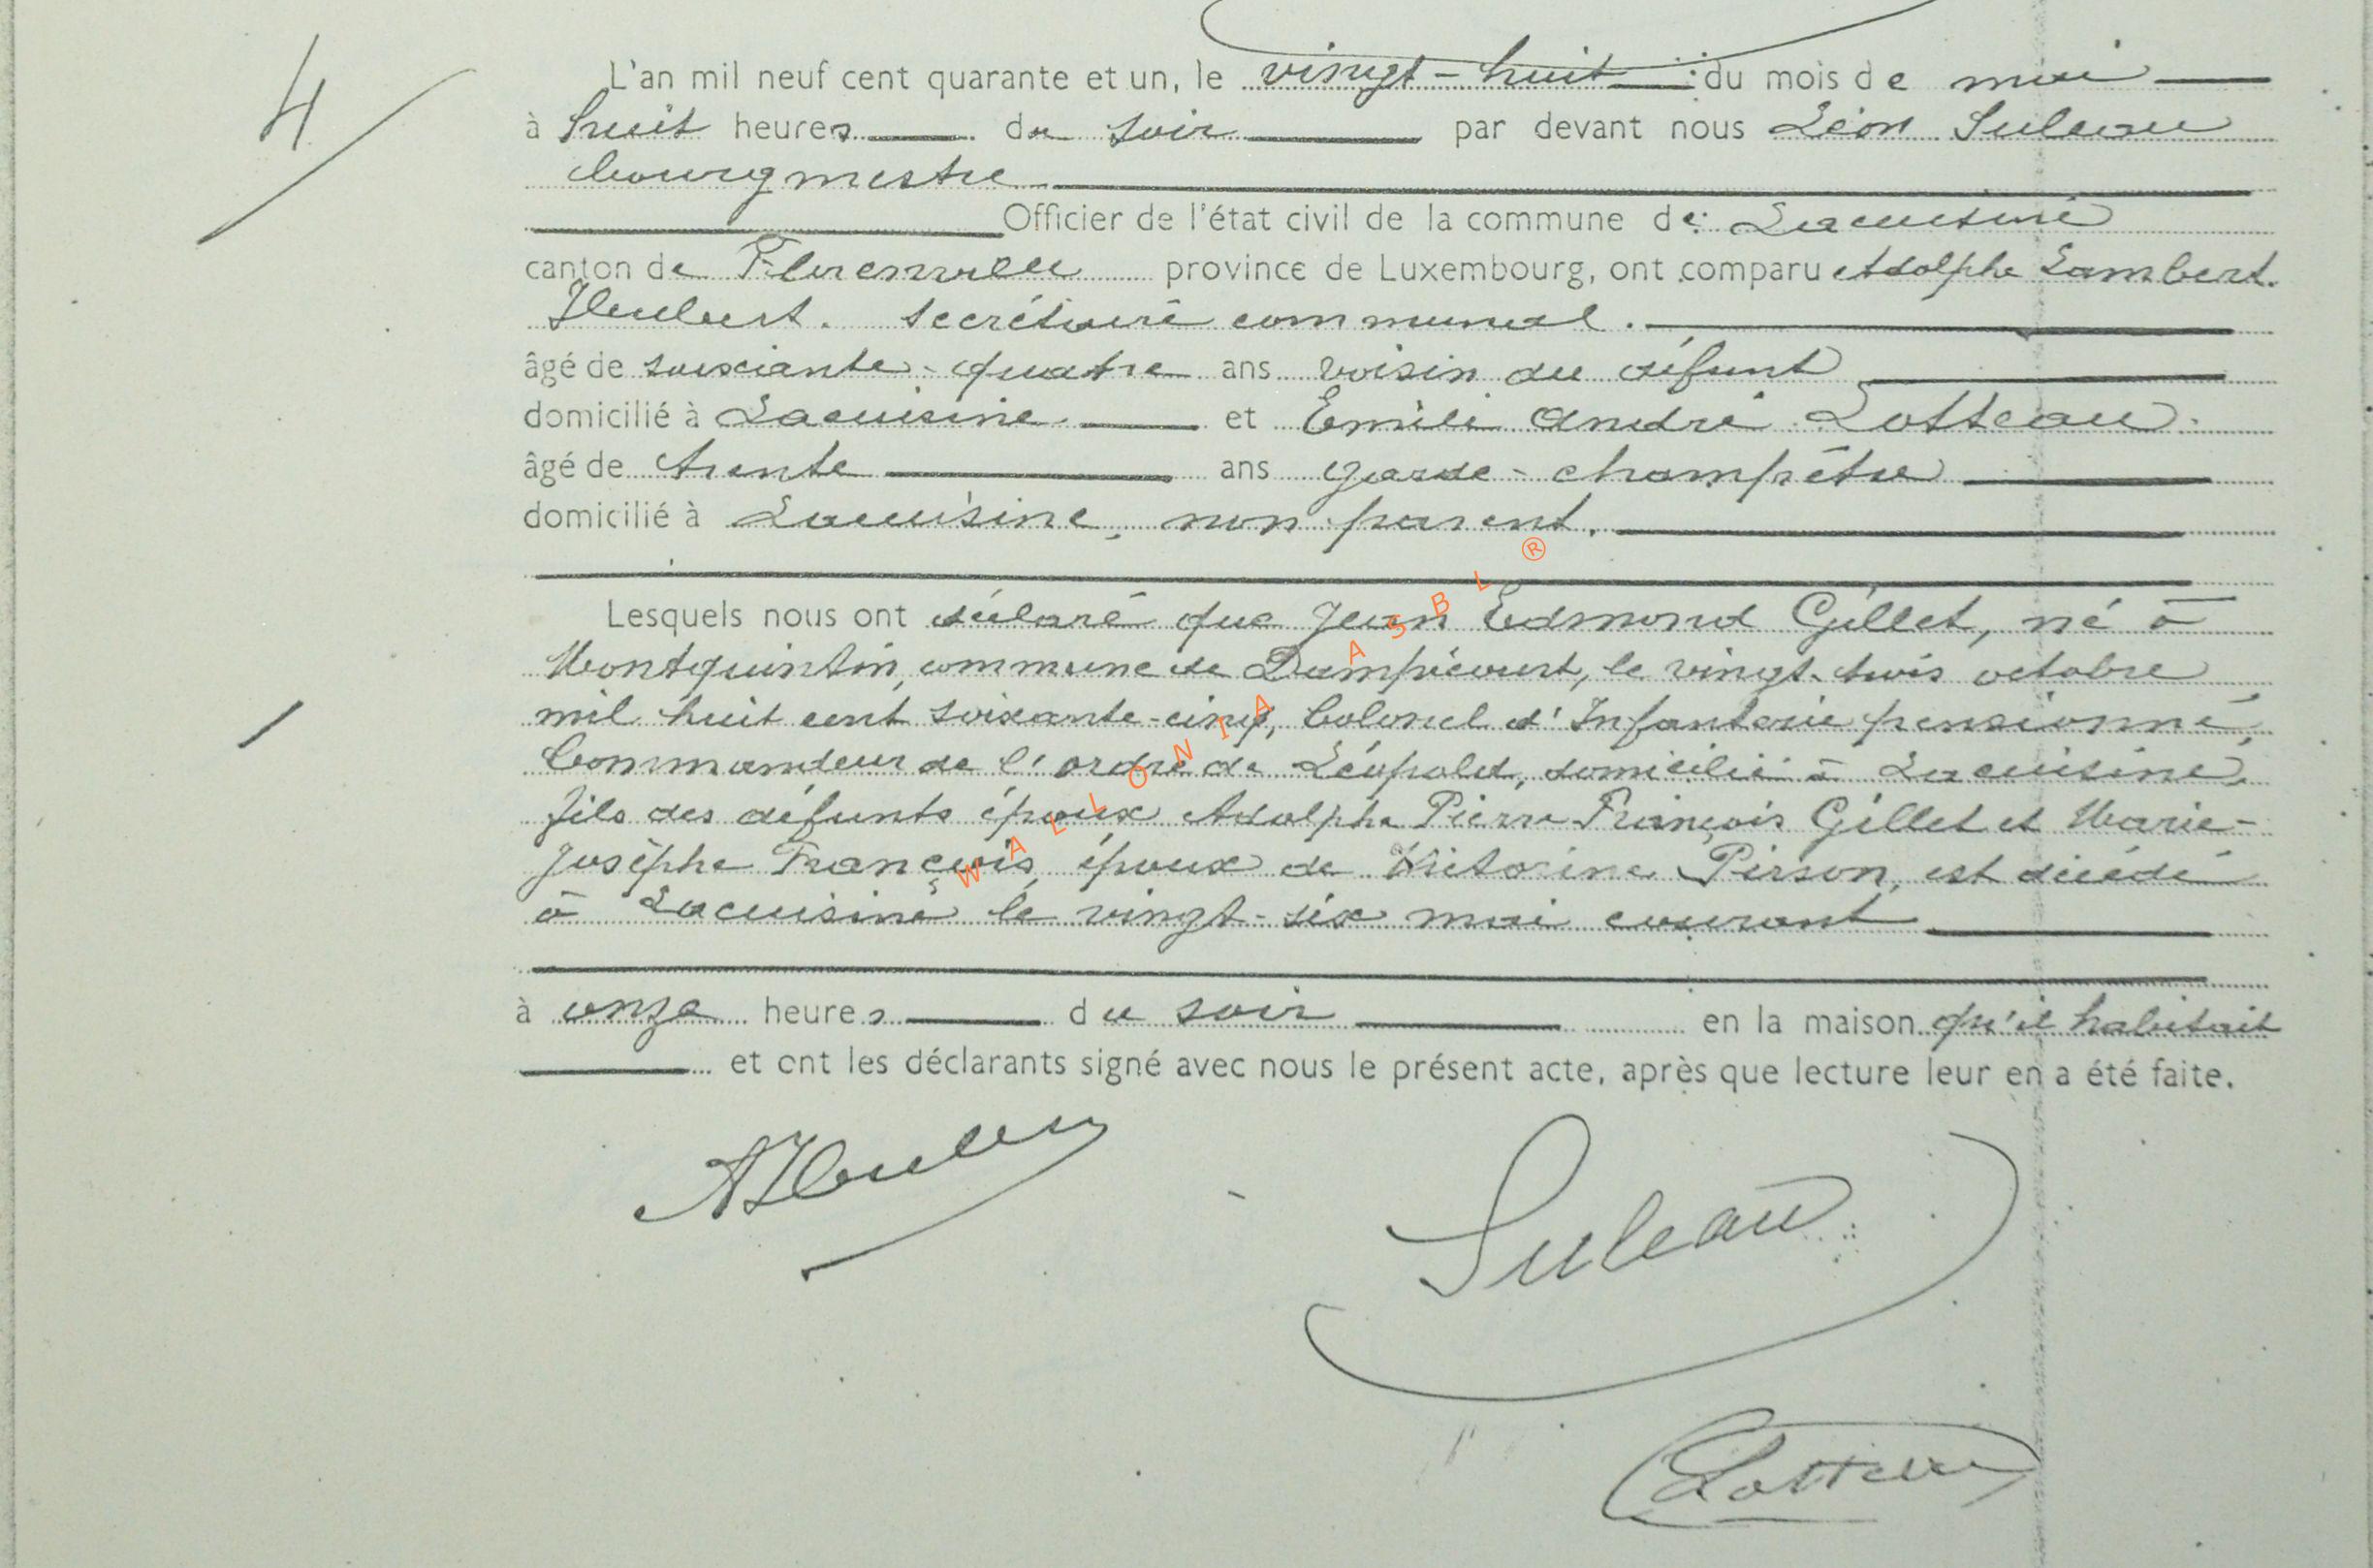 4
L'an mil neuf cent quarante et un, le vingt-huit du mois de mai
à huit heures du soir par devant nous Léon Suleau
bourgmestre
Officier de l'état civil de la commune de Lacuisine
canton de Florenville province de Luxembourg, ont comparu Adolphe Lambert
Hubert. secrétaire communal.
âgé de soixante-quatre ans voisin du défunt
domicilié à Lacuisine et Emile André Lotteau
âgé de trente ans garde-champêtre
domicilié à Lacuisine, non parent.
Lesquels nous ont déclaré que Jean Edmond Gillet, né à
Montquintin, commune de Dampicourt, le vingt-trois octobre
mil huit cent soixante-cinq, Colonel d'Infanterie pensionné,
Commandeur de l'ordre de Léopold, domicilié à Lacuisine,
fils des défunts époux Adolphe Pierre François Gillet et Marie-
Josèphe François, époux de Victorine Pirson, est décédé
à Lacuisine le vingt-six mai courant
à onze heures du soir en la maison qu'il habitait
et ont les déclarants signé avec nous le présent acte, après que lecture leur en a été faite.
Suleau
Lotteau
WALLONIA ASBL ®